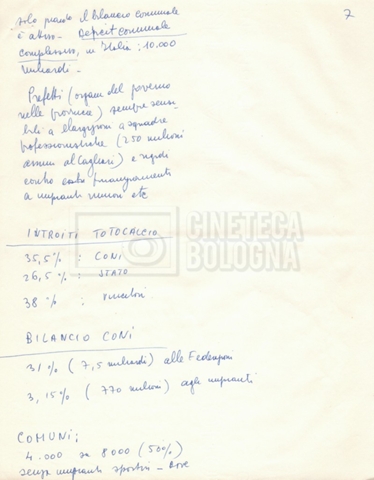 7
solo quando il bilancio comunale
è attivo - Deficit comunale
complessivo, in Italia: 10.000
miliardi -
Prefetti (organi del governo
nelle province) sempre sensi
bili a elargizioni a squadre
professionistiche (250 milioni
al Cagliari) e rigidi
contro finanziamento
a impianti minori etc
INTROITI TOTOCALCIO
35,5% : CONI
26,5% : STATO
38 % : vincitori
CINETECA
BOLOGNA
BILANCIO CONI
31% (7,5 miliardi) alle Federazioni
3,15% (770 milioni) agli impianti
COMUNI:
4.000 su 8000 (50%)
senza impianti sportivi - Dove